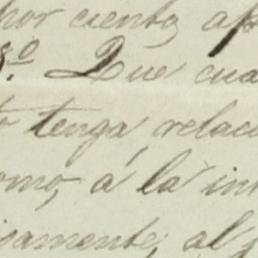 por ciento, ap
3.º Que cua
tenga relac
omo, á la in
camente, al